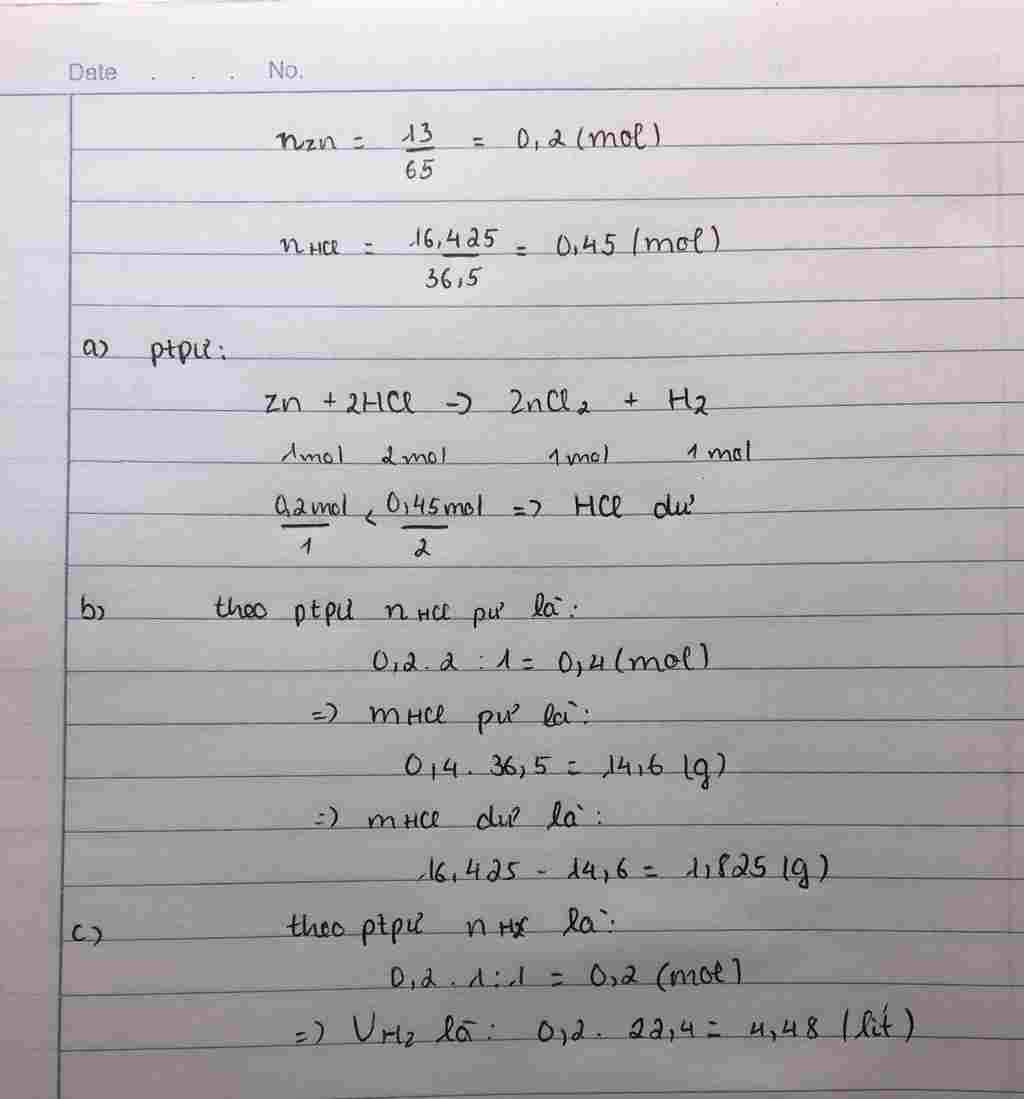 Date . . . No.
nZn = 13/65 = 0,2 (mol)
nHCl = 16,425/36,5 = 0,45 (mol)
a) ptpư:
Zn + 2HCl -> ZnCl₂ + H₂
1mol 2mol 1mol 1mol
0,2mol/1 < 0,45mol/2 => HCl dư
b) theo ptpư nHCl pư là:
0,2 . 2 : 1 = 0,4 (mol)
=> mHCl pư là:
0,4 . 36,5 = 14,6 (g)
=> mHCl dư là:
16,425 - 14,6 = 1,825 (g)
c) theo ptpư nH₂ là:
0,2 . 1 : 1 = 0,2 (mol)
=> VH₂ là: 0,2 . 22,4 = 4,48 (lít)